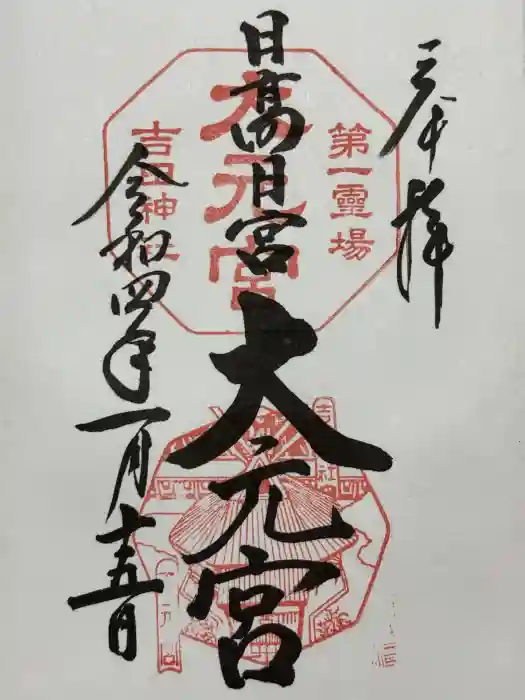 奉拝
第一靈場
大元宮
吉田神社
日髙日宮
大元宮
令和四年一月十五日
吉
社